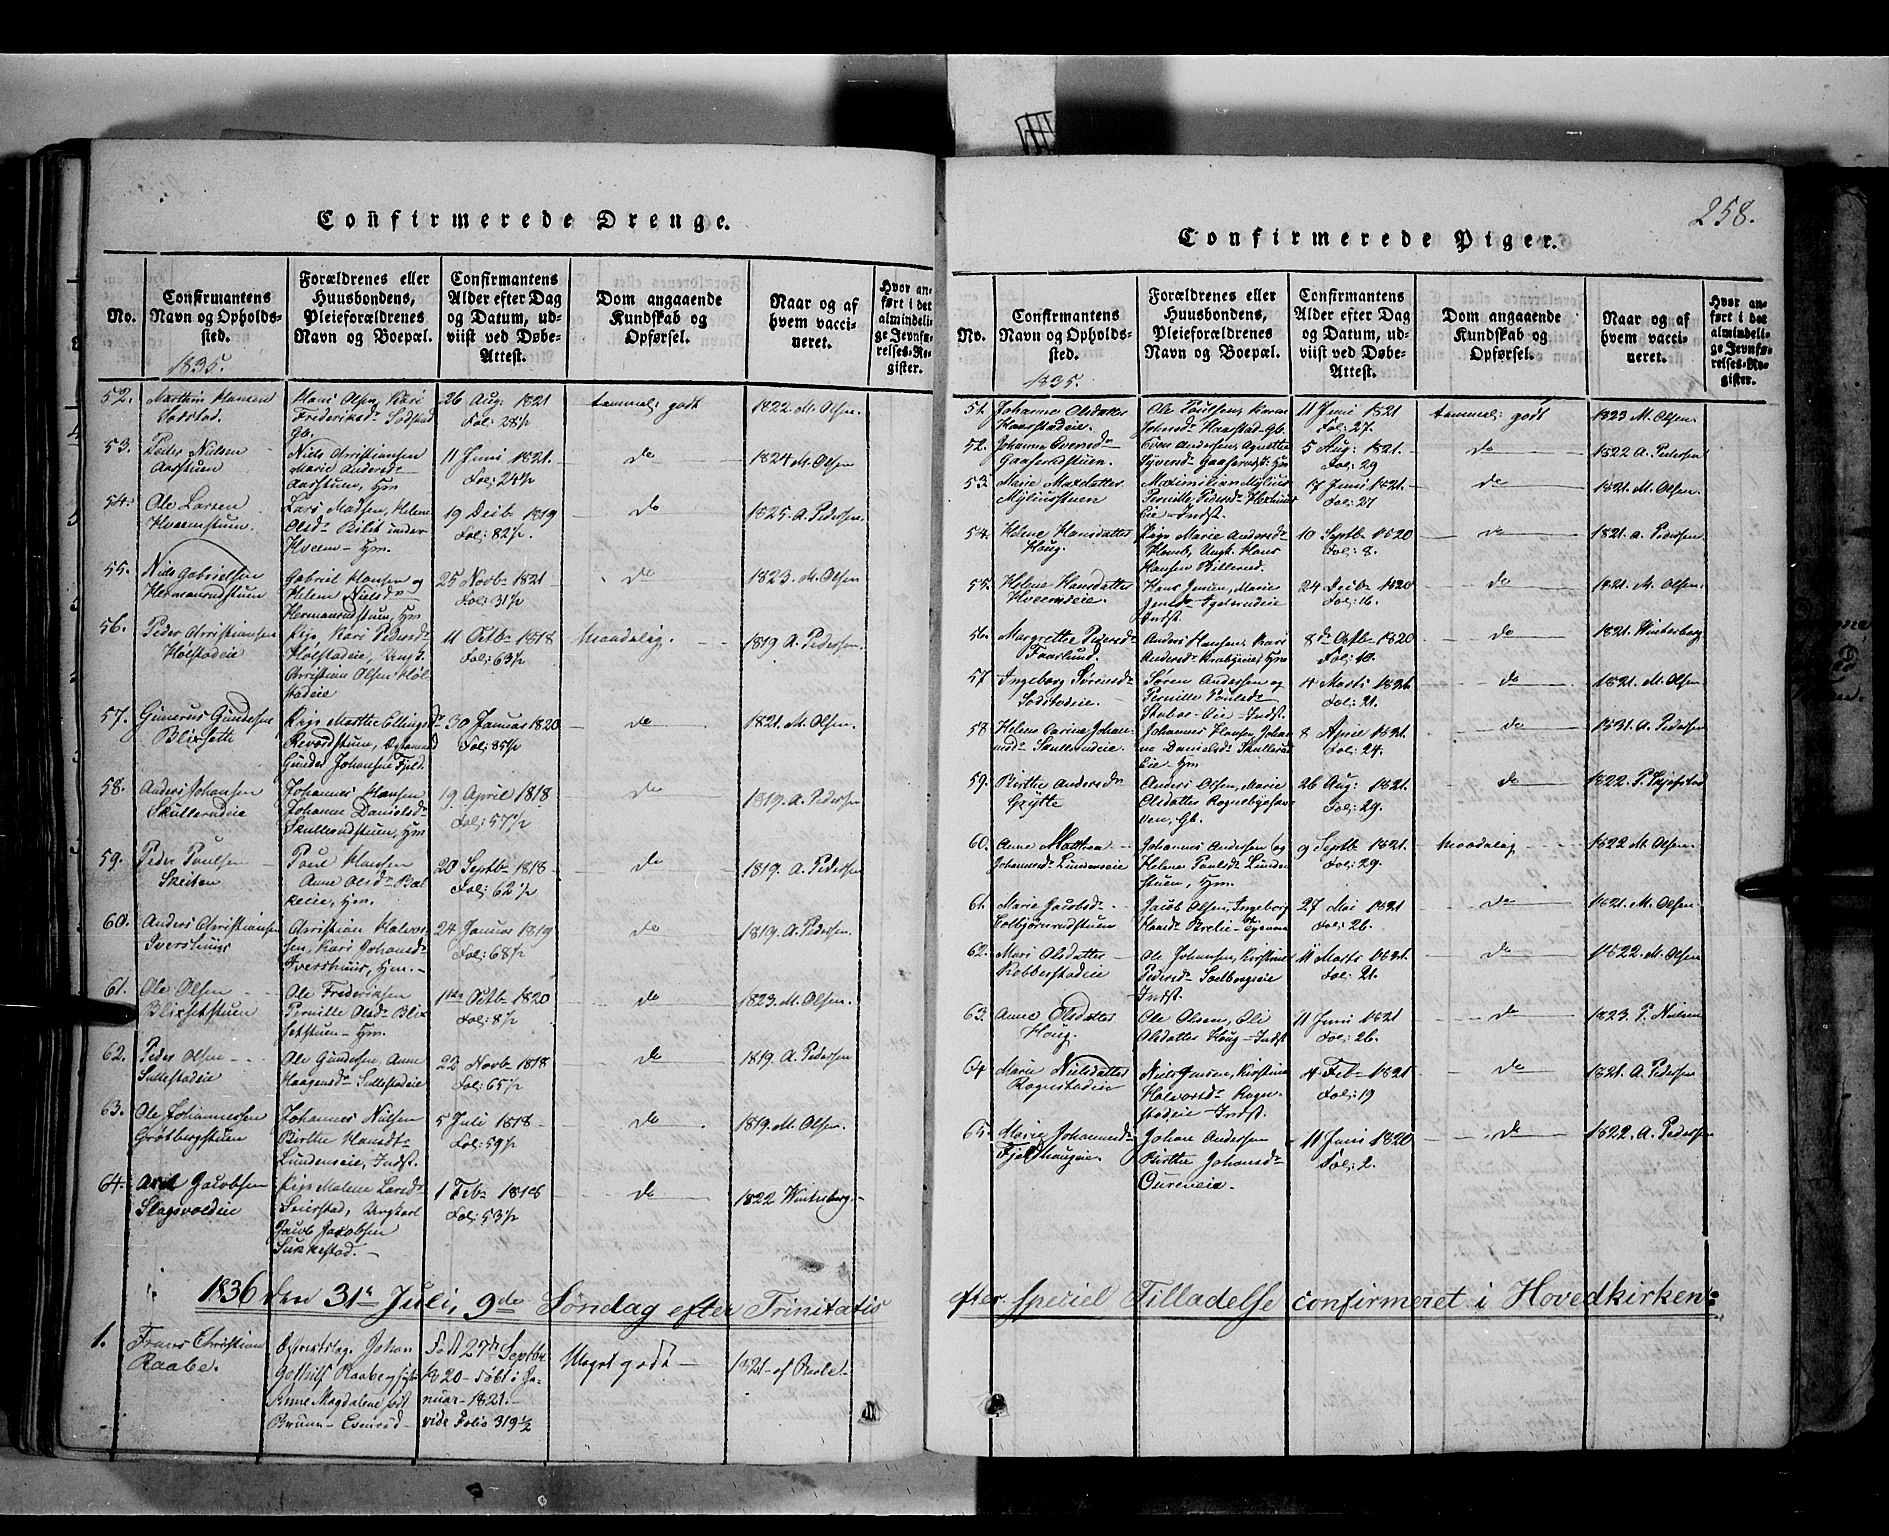 Confirmerede Drenge.
No.
Confirmantens
Navn og Opholds-
sted.
Forældrenes eller
Huusbondens,
Pleieforældrenes
Navn og Boepæl.
Confirmantens
Alder efter Dag
og Datum, ud-
viist ved Døbe-
Attest.
Dom angaaende
Kundskab og
Opførsel.
Naar og af
hvem vacci-
neret.
Hvor an-
ført i det
almindeli-
ge Jevnfø-
relses-Re-
gister.
1835.
52.
Hansen
Hans Olsen, Kari
Frederiksd
Gb.
26 Aug: 1821
Fol: 28½
temmel: godt
1822 M. Olsen
53.
Peder Nilsen
Aarstuen
Niels Christiansen
Marie Andersd
Aarstuen, Hm
11 Juni 1821.
Fol: 24½
do
1824 M. Olsen
54.
Ole Larsen
Hveemstuen.
Lars Madsen, Helene
Olsd Bilit under
Hveem - Hm.
19 Decb 1819
Fol: 82½.
do
1825. A. Pedersen
55.
Niels Gabrielsen
Hermanrudstuen
Gabriel Hansen og
Helene Nielsd
Hermanrudstuen, Hm
25 Novb 1821
Fol: 31½
do
1823. M. Olsen
56.
Peder Christiansen
Hølstadeie
Pige Kari Pedersd
Hølstadeie, Ungk.
Christian Olsen Høl
stadeie
11 Octb 1818
Fol: 63½
Maadelig.
1819 A. Pedersen
57.
Gunerus Gundersen
Blixsette
Pige Marthe Ellingsd
Gunder Johansen Fjeld.
30 Januar 1820
Fol: 85½
do
1821. M. Olsen.
58.
Anders Johansen
Skullerudeie
Johannes Hansen
Johanne Danielsd
Skullerudstuen, Hm
19 April 1818
Fol: 57½
do
1819. A. Pedersen
59.
Peder Poulsen
Skeiten
Poul Hansen
Anne Olsd Bæk
keeie, Hm.
20 Septb 1818
Fol: 62½
do
1819. A. Pedersen
60.
Anders Christiansen
Ivershuus
Christian Halvor
sen, Kari Johansd
Ivershuus, Hm.
24 Januar 1819
Fol: 68½
do
1819. A. Pedersen
61.
Ole Olsen
Blixsetstuen
Ole Frederiksen
Pernille Olsd Blix
setstuen - Hm.
1ste Octb 1820
Fol: 8½
do
1823. M. Olsen.
62.
Peder Olsen
Sullestadeie
Ole Gundersen, Anne
Haagensd Sullestadeie
22 Novb 1818
Fol: 65½
do
1819. A. Pedersen
63.
Ole Johannessen
Grøtbergstuen
Johannes Nilsen
Birthe Hansdt
Lundeneie, Indst.
5 Juli 1818
Fol: 59½
do
1819. M. Olsen.
64.
Jacobsen
Slagsvoldeie
Pige Malene Larsd
Seierstad, Ungkarl
Jacob Jacobsen
Sukkestad.
1 Feb 1818
Fol: 53½
do
1822 Winterberg
1836 den 31te Juli, 9de Søndag efter Trinitatis
1.
Frans Christian
Raabe.
Johan
Gotthilf Raabe og
Anne Magdalene født
Bruun
Født 27de Septbr
1820 - døbt i Ja-
nuar 1821.
vide Folio 319½
Meget godt
1821 af
258.
Confirmerede Piger.
No.
Confirmantens
Navn og Opholds-
sted.
Forældrenes eller
Huusbondens,
Pleieforældrenes
Navn og Boepæl.
Confirmantens
Alder efter Dag
og Datum, ud-
viist ved Døbe-
Attest.
Dom angaaende
Kundskab og
Opførsel.
Naar og af
hvem vacci-
neret.
Hvor an-
ført i det
almindeli-
ge Jevnfø-
relses-Re-
gister.
1835.
51.
Johanne Olsdatter
Haarstadeie.
Ole Poulsen, Karen
Johnsd Haarstad Gb.
11 Juni 1821
Fol: 27.
temmel: godt
1823 M. Olsen.
52.
Johanne Evensd
Gaaserudstuen.
Even Andersen, Agnethe
Syversd Gaaserudst: Hm
5 Aug: 1821.
Fol: 29
do
1822 A. Pedersen
53.
Marie Maxdatter
Myliusstuen
Maximilian Mylius
Pernille Pedersd
Eie - Indst.
17 Juni 1821.
Fol: 27
do
1821. M. Olsen.
54.
Helene Hansdatter
Houg.
Pige Marie Andersd
Ungk. Hans
Hansen Billerud.
10 Septb 1820
Fol: 8.
do
1821. A. Pedersen
55.
Helene Hansdatter
Hveemseie.
Hans Jensen, Marie
Jensd
Indst.
24 Decb 1820
Fol: 16.
do
1821. M. Olsen
56.
Margrethe Pedersd
Faarlund.
Anders Hansen, Kari
Andersd Krabyenes Hm
8de Octb 1820
Fol: 10.
do
1821. Winterberg
57
Ingeborg Sørensd
Sodstadeie.
Søren Andersen og
Pernille Poulsd
Staboe-Eie - Indst.
4 Marts 1821.
Fol: 21.
do
1821. M. Olsen
58
Helene Carine Johan
nesd Skullerudeie.
Johannes Hansen, Johan
ne Danielsd Skullerud
Eie - Hm
8 April 1821.
Fol: 24.
do
1831. A. Pedersen
59.
Birthe Andersd
Grytte
Anders Olsen, Marie
Olsdatter Rognebyehau
ven, Gb.
26 Aug: 1821.
Fol: 29.
do
1822.
60.
Anne Mathea
Johannesd Lundeneie
Johannes Andersen og
Helene Poulsd Lunden
stuen, Hm.
9 Septb 1821.
Fol: 29.
Maadelig
1822 M. Olsen.
61.
Marie Jacobsd
Colbjørnrudstuen
Jacob Olsen, Ingeborg
Hansd
27 Mai 1821
Fol: 26.
do
1821. M. Olsen
62.
Mari Olsdatter
Robberstadeie
Ole Johansen, Kirstine
Pedersd Solbergeie
Indst.
11 Marts 1821.
Fol: 21.
do
1822. M. Olsen
63.
Anne Olsdatter
Houg.
Ole Olsen, Oli
Olsdatter Houg - Indst
11 Juni 1821
Fol: 26.
do
1823. P. Nielsen
64
Marie Nielsdatter
Rognstadeie
Niels Jensen, Kirstine
Halvorsd Rogn-
stadeie - Indst.
4 Feb 1821
Fol: 19
do
1821. A. Pedersen
65.
Marie Johannesd
Fjeldhaugeie.
Johan Andersen
Birthe Johansd
Oureneie.
11 Juni 1820
Fol: 2.
do
1822. A. Pedersen
efter speciel Tilladelse confirmeret i Hovedkirken: